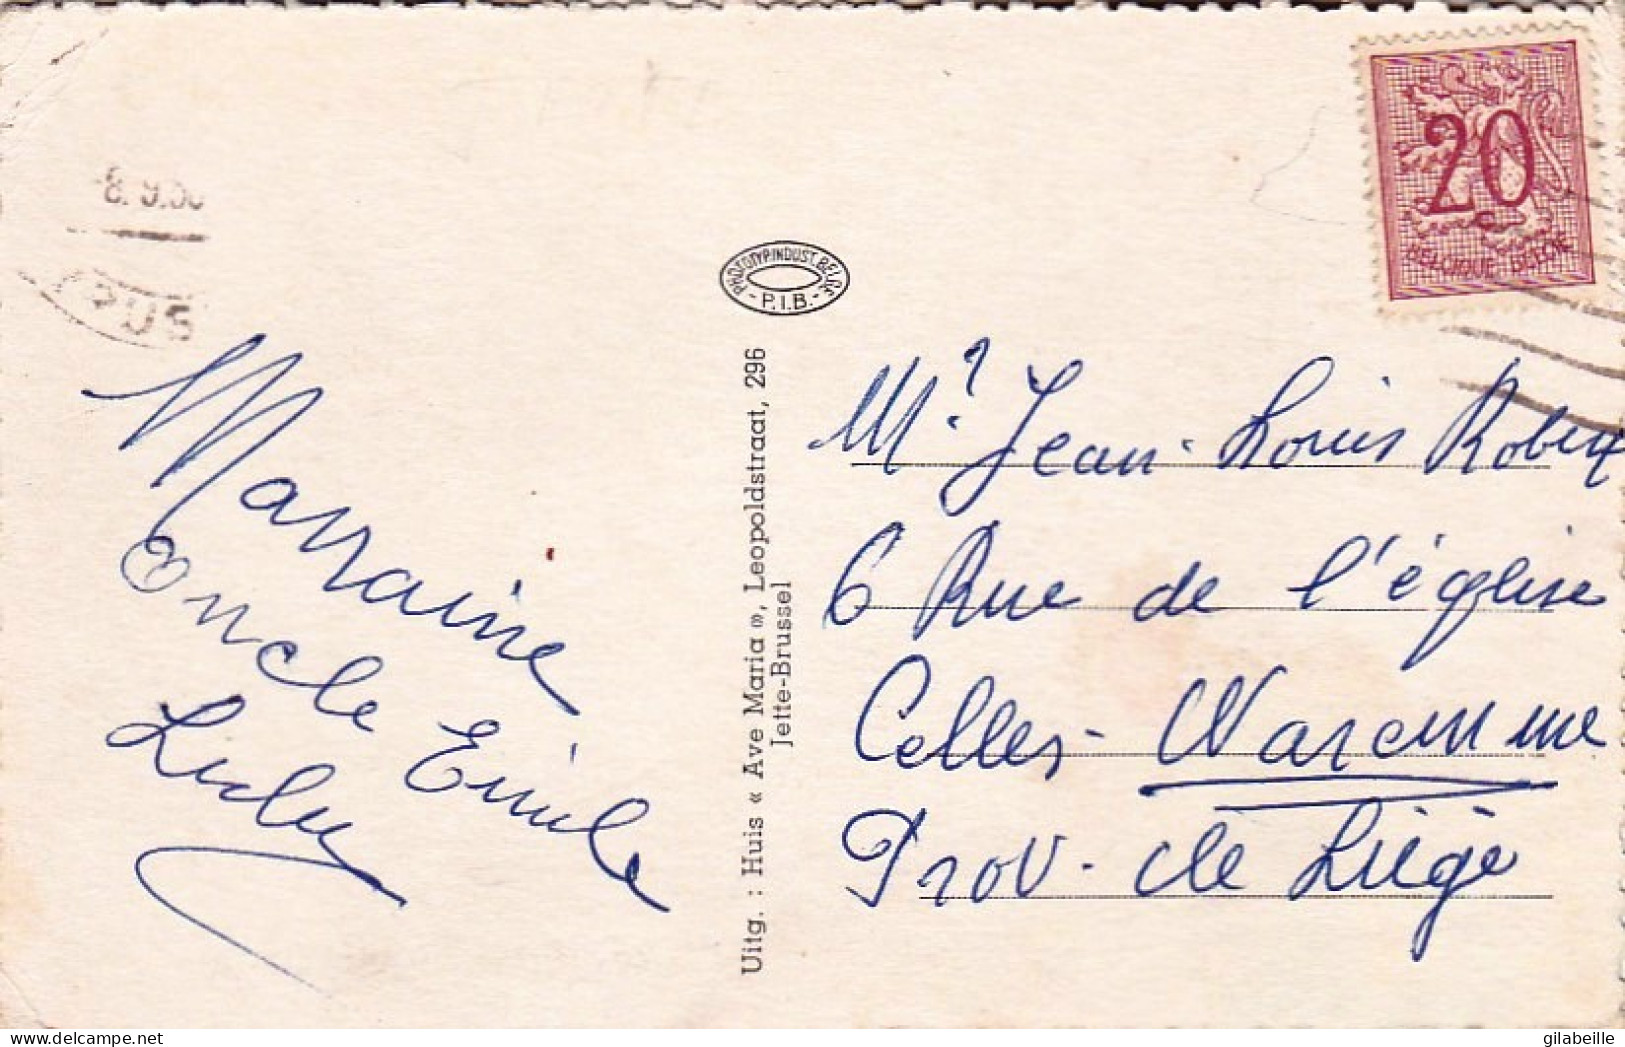 8.9.5
PUS
PHOTOTYP.INDUST.BELGE
- P.I.B. -
20
c
BELGIQUE BELGIE
Marraine
Oncle Emile
Uitg. : Huis « Ave Maria », Leopoldstraat, 296
Jette-Brussel
Mr. Jean-Louis Robert
6 Rue de l'église
Celles-Waremme
Prov. de Liège
gilabeille